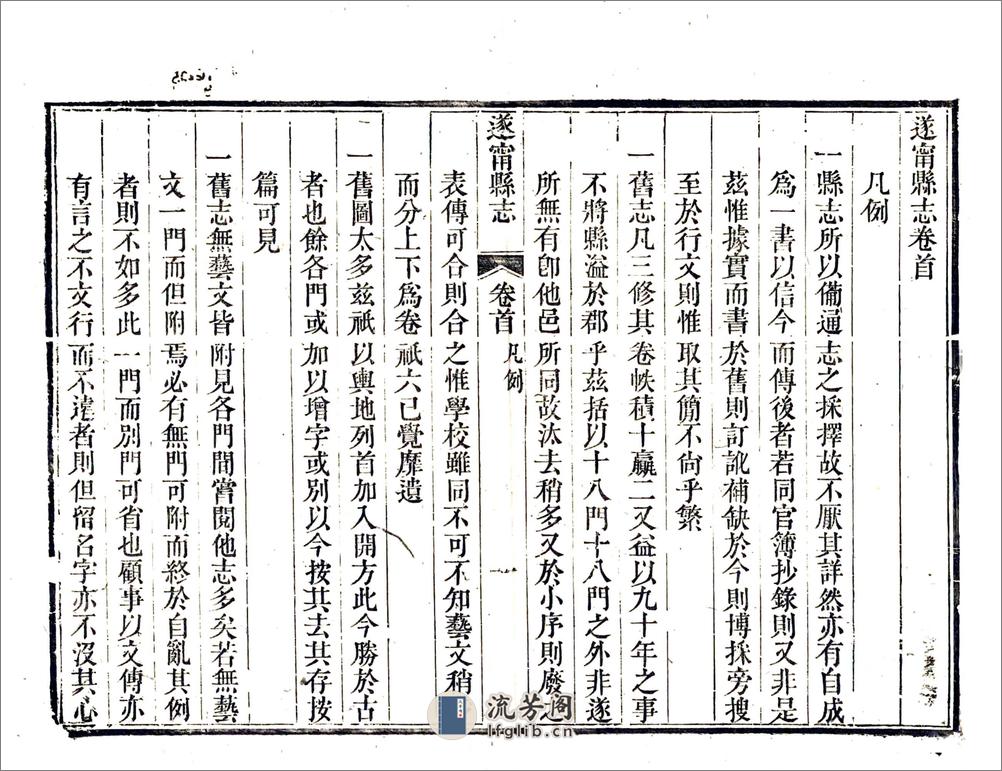 遂甯縣志卷首
凡例
一縣志所以備通志之採擇故不厭其詳然亦有自成
爲一書以信今而傳後者若同官簿抄錄則又非是
茲惟據實而書於舊則訂訛補缺於今則博採旁搜
至於行文則惟取其簡不尙乎繁
一舊志凡三修其卷帙積十贏二又益以九十年之事
不將縣溢於郡乎茲括以十八門十八門之外非遂
所無有卽他邑所同故汰去稍多又於小序則廢
遂甯縣志 卷首 凡例 一
表傳可合則合之惟學校雖同不可不知藝文稍
而分上下爲卷祇六已覺靡遺
一舊圖太多茲祇以輿地列首加入開方此今勝於古
者也餘各門或加以增字或別以今按其去其存按
篇可見
一舊志無藝文皆附見各門間嘗閱他志多矣若無藝
文一門而但附焉必有無門可附而終於自亂其例
者則不如多此一門而別門可省也顧事以文傳亦
有言之不文行而不遠者則但留名字亦不沒其心
流芳阁
lfglib.cn